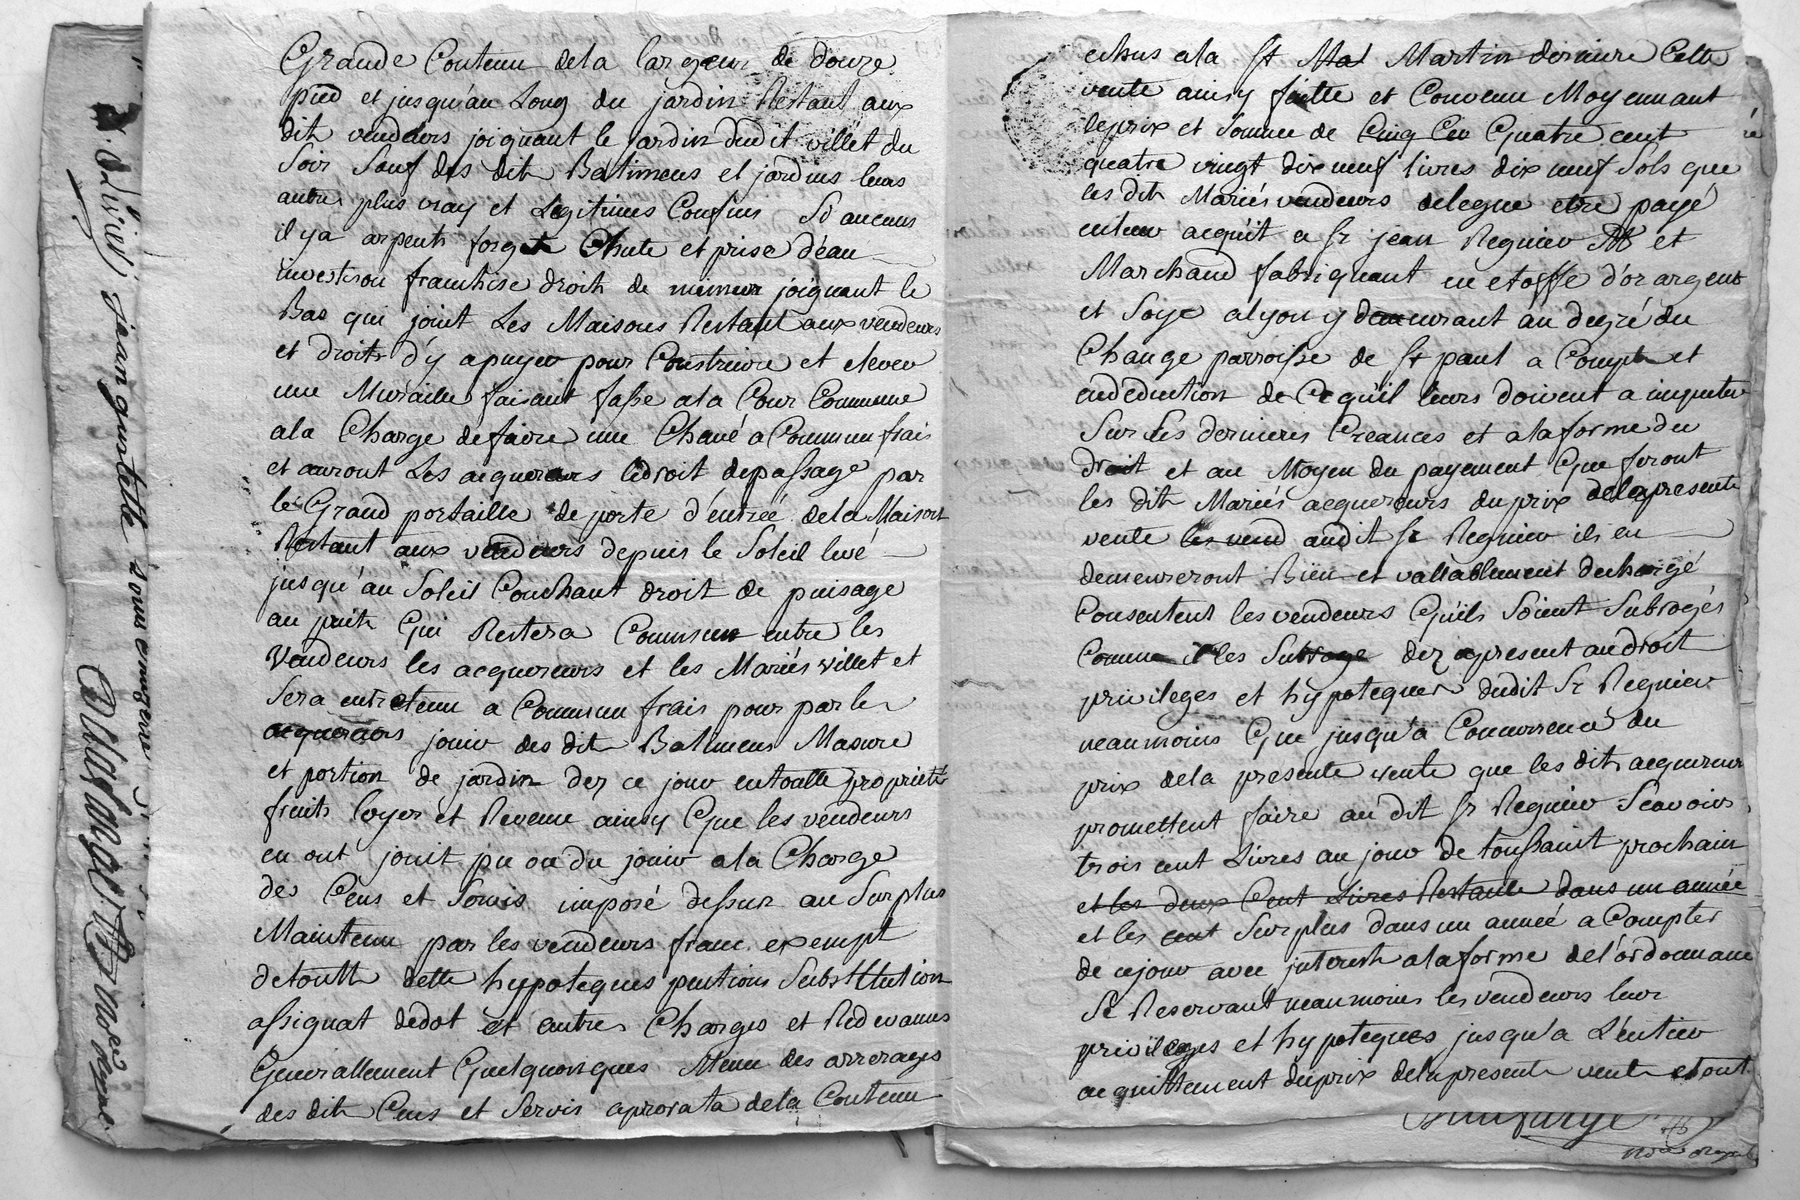 Grande Contenu dela largeur de douze
pied et jusqu'au Long du jardin Restant aux
dits vendeurs joignant le jardin dudit villet du
Soir Sauf des dits Batimens et jardins leurs
autres plus vray et Legitimes Confins Si aucuns
il y a arpents forget Chute et prise d'eau
investison franchise droits de mimeur joignant le
Bas qui joint Les Maisons Restant aux vendeurs
et droits d'y apuyer pour Construire et elever
une Muraille faisant fasse ala Cour Commune
ala Charge defaire une Chané a Commun frais
et auront Les acquereurs ledroit depassage par
le Grand portaille de porte d'entrée dela Maison
Restant aux vendeurs depuis le Soleil levé
jusqu'au Soleil Couchant droit de puisage
au puits Qui Restera Commun entre les
Vendeurs les acquereurs et les Mariés villet et
Sera entretenu a Commun frais pour par les
acquereurs jouir des dits Batimens Masure
et portion de jardin dez ce jour entoutte proprieté
fruits loyer et Revenu ainsy Que les vendeurs
en ont jouit pu ou du jouir ala Charge
des Cens et Servis imposé dessur au Surplus
Maintenu par les vendeurs franc exempt
detoutte dette hypoteques pentions Substitution
assignat dedot et autres Charges et Redevances
Generallement Quelquonques Meme des arrerages
des dits Cens et Servis aprorata dela Contenu
echus ala St Mar Martin derniere Cette
vente ainsy faitte et Convenu Moyennant
leprix et Somme de Cinq Cen Quatre cent
quatre vingt dix neuf livres dix neuf Sols que
les dits Mariés vendeurs delegue etre payé
enleur acquit a Sr jean Regnier Me et
Marchand fabriquant en etoffe d'or argent
et Soye alyon y demeurant au degré du
Change parroisse de St paul a Compte et
endeduction de Ce qu'il leurs doivent a imputer
Sur Les dernieres Creances et alaforme du
droit et au Moyen du payement Que feront
les dits Mariés acquereurs duprix delapresente
vente les vend audit Sr Regnier ils en
demeureront Bien et vallablement dechargé
Consentent les vendeurs Qu'ils Soient Subrogés
Comme il les Subroge dez apresent audroit
privileges et hypoteques dudit Sr Regnier
neanmoins Que jusqu'a Concurrence du
prix dela presente vente que les dits acquereur
promettent faire au dit Sr Regnier Scavoir
trois cent Livres au jour de toussaint prochain
et les deux Cent Livres Restante dans un année
et les cent Surplus dans un année a Compter
de cejour avec interests alaforme del'ordonnance
Se Reservant neanmoins les vendeurs leur
privileges et hypoteques jusqu'a L'entier
acquittement duprix delapresente vente et tout